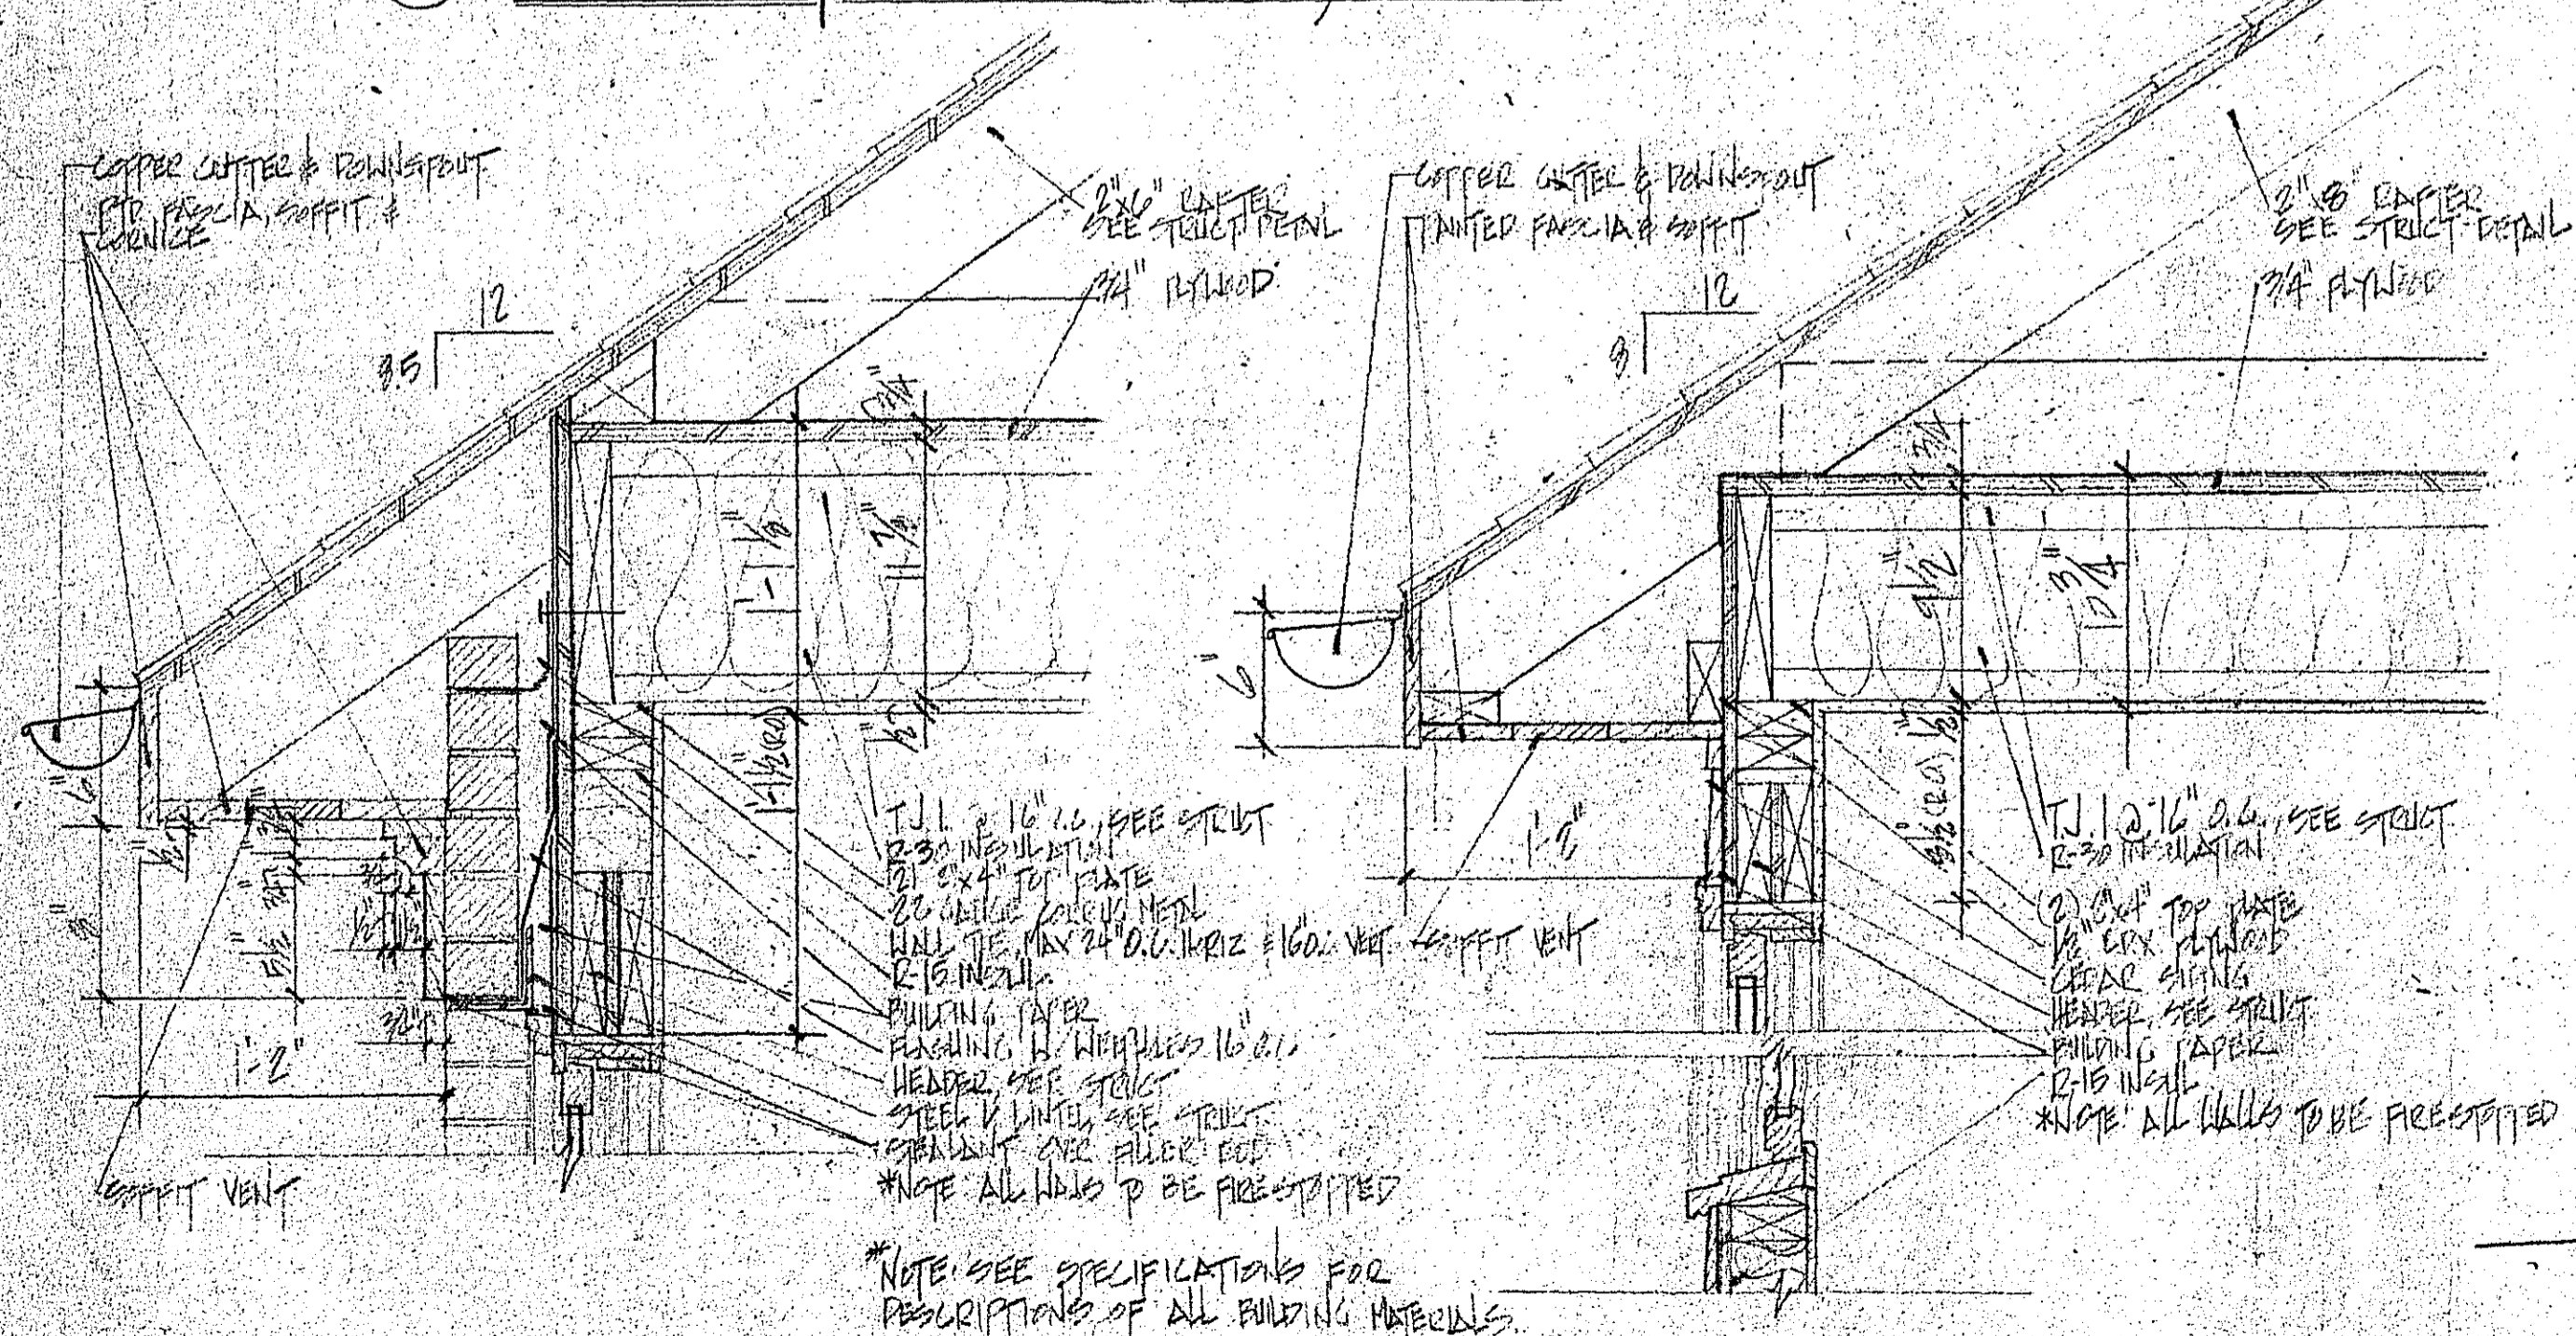 COPPER GUTTER & DOWNSPOUT
PTD. FASCIA, SOFFIT &
CORNICE
12
8.5
2"x6" RAFTER
SEE STRUCT DETAIL
3/4" PLYWOOD
3/4"
1'-1 1/2"
11 7/8"
1/2"
1'-1 1/2" (R.O.)
6"
1/2"
8"
3/4"
5 1/2"
3/4"
1/2"
1/2"
3/4"
1'-2"
SOFFIT VENT
T.J.I. @ 16" O.C., SEE STRUCT
R-30 INSULATION
2) 2"x4" TOP PLATE
22 GAUGE METAL
WALL TIE, MAX 24" O.C. HORIZ & 16 O.C. VERT
R-15 INSUL.
BUILDING PAPER
FLASHING W/ WEEPHOLES 16" O.C.
HEADER, SEE STRUCT
STEEL L LINTEL, SEE STRUCT
SEALANT OVER FILLER ROD
*NOTE: ALL WALLS TO BE FIRESTOPPED
*NOTE: SEE SPECIFICATIONS FOR
DESCRIPTIONS OF ALL BUILDING MATERIALS.
COPPER GUTTER & DOWNSPOUT
PAINTED FASCIA & SOFFIT
12
8
2"x8" RAFTER
SEE STRUCT DETAIL
3/4" PLYWOOD
3/4"
9 1/2"
10 3/4"
1/2"
6"
1'-2"
SOFFIT VENT
T.J.I @ 16" O.C., SEE STRUCT
R-30 INSULATION
(2) 2"x4" TOP PLATE
1/2" CDX PLYWOOD
CEDAR SIDING
HEADER, SEE STRUCT
BUILDING PAPER
R-15 INSUL
*NOTE: ALL WALLS TO BE FIRESTOPPED